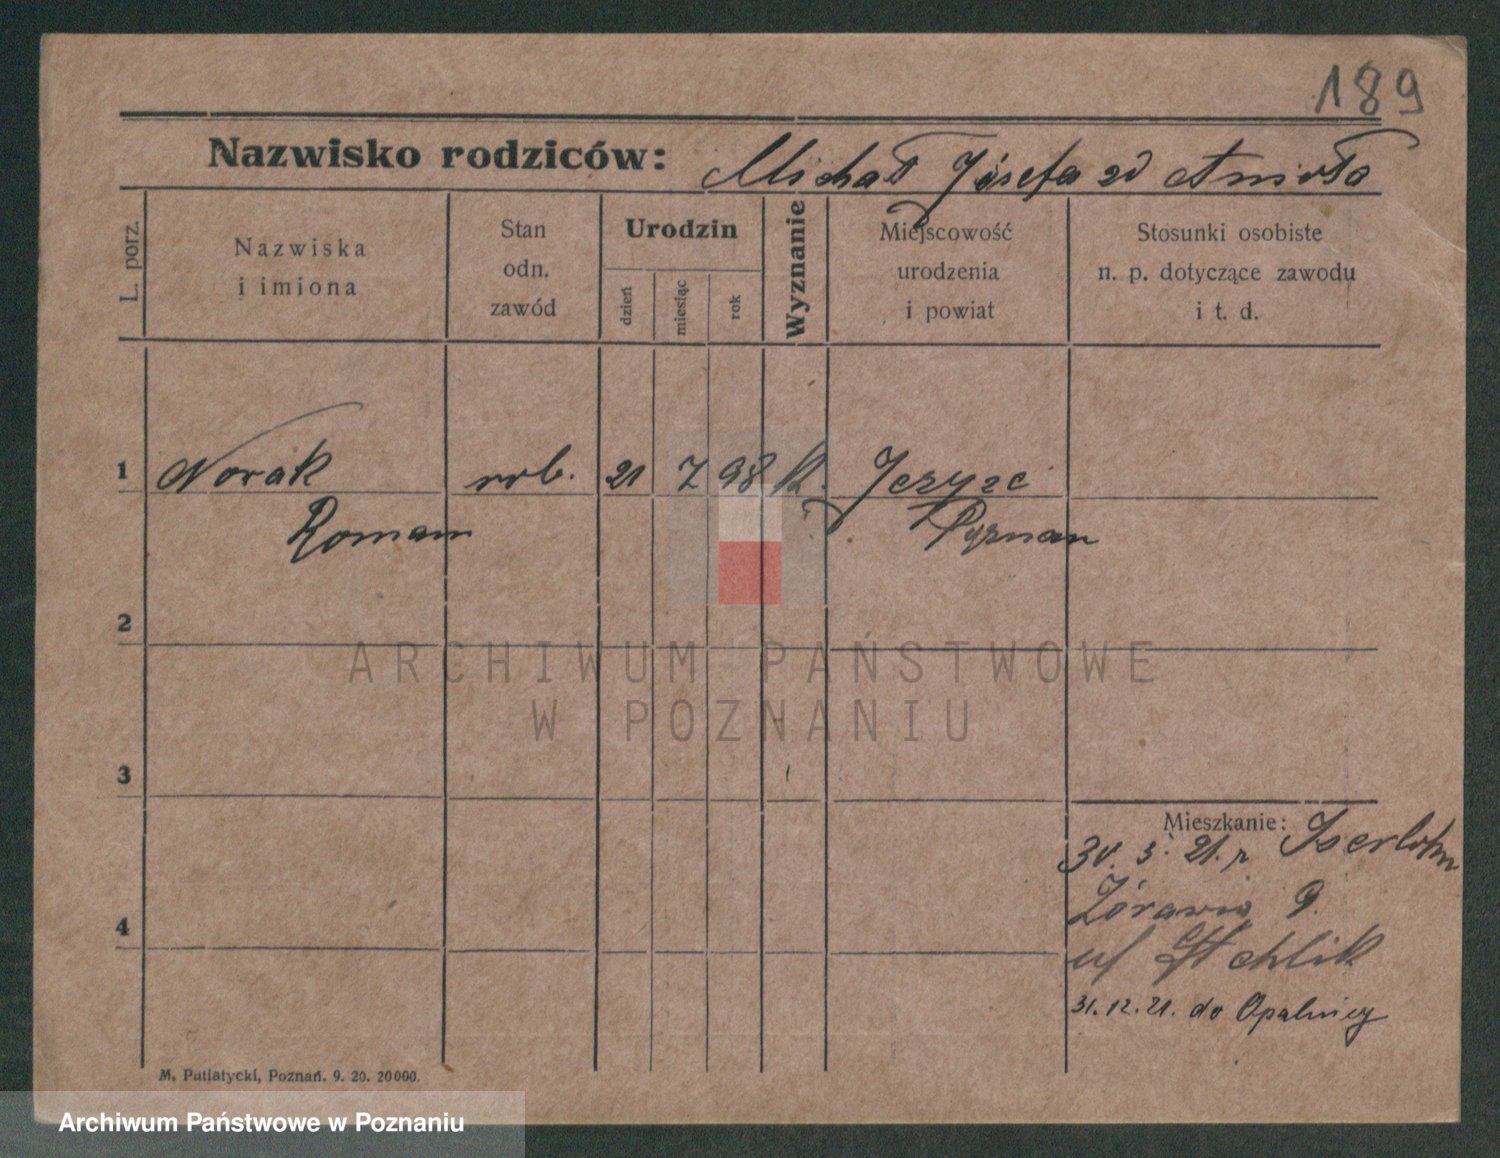 189
Nazwisko rodziców: Michał Józefa zd Anioła
L. porz.
Nazwiska
i imiona
Stan
odn.
zawód
Urodzin
dzień
miesiąc
rok
Wyznanie
Miejscowość
urodzenia
i powiat
Stosunki osobiste
n. p. dotyczące zawodu
i t. d.
1 Novak rob. 21 7 98 k.
Roman Poznan
2
3
4
Mieszkanie:
30. 3. 21. r Iserlohn
Żórawia 9.
u/
31.12.21. do Opalenicy
M. Putiatycki, Poznań. 9. 20. 20000.
ARCHIWUM PAŃSTWOWE
W POZNANIU
Archiwum Państwowe w Poznaniu